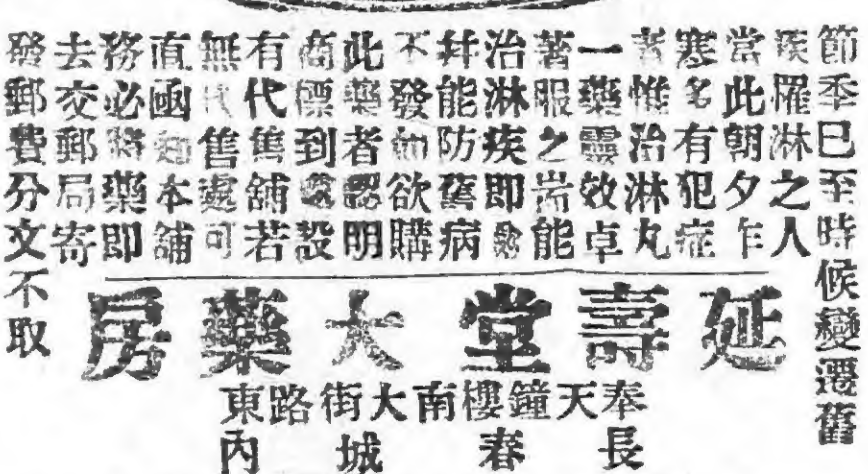 節季已至時候變遷舊
疾罹淋之人
當此朝夕乍
寒多有犯症
者惟治淋丸
一藥靈效卓
著服之耑能
治淋疾即愈
幷能防舊病
不發如欲購
此藥者認明
商標到處設
有代售舖若
無代售處可
直函知本舖
務必將藥即
去交郵局寄
發郵費分文不取
延壽堂大藥房
奉天鐘樓南大街路東
長春城內